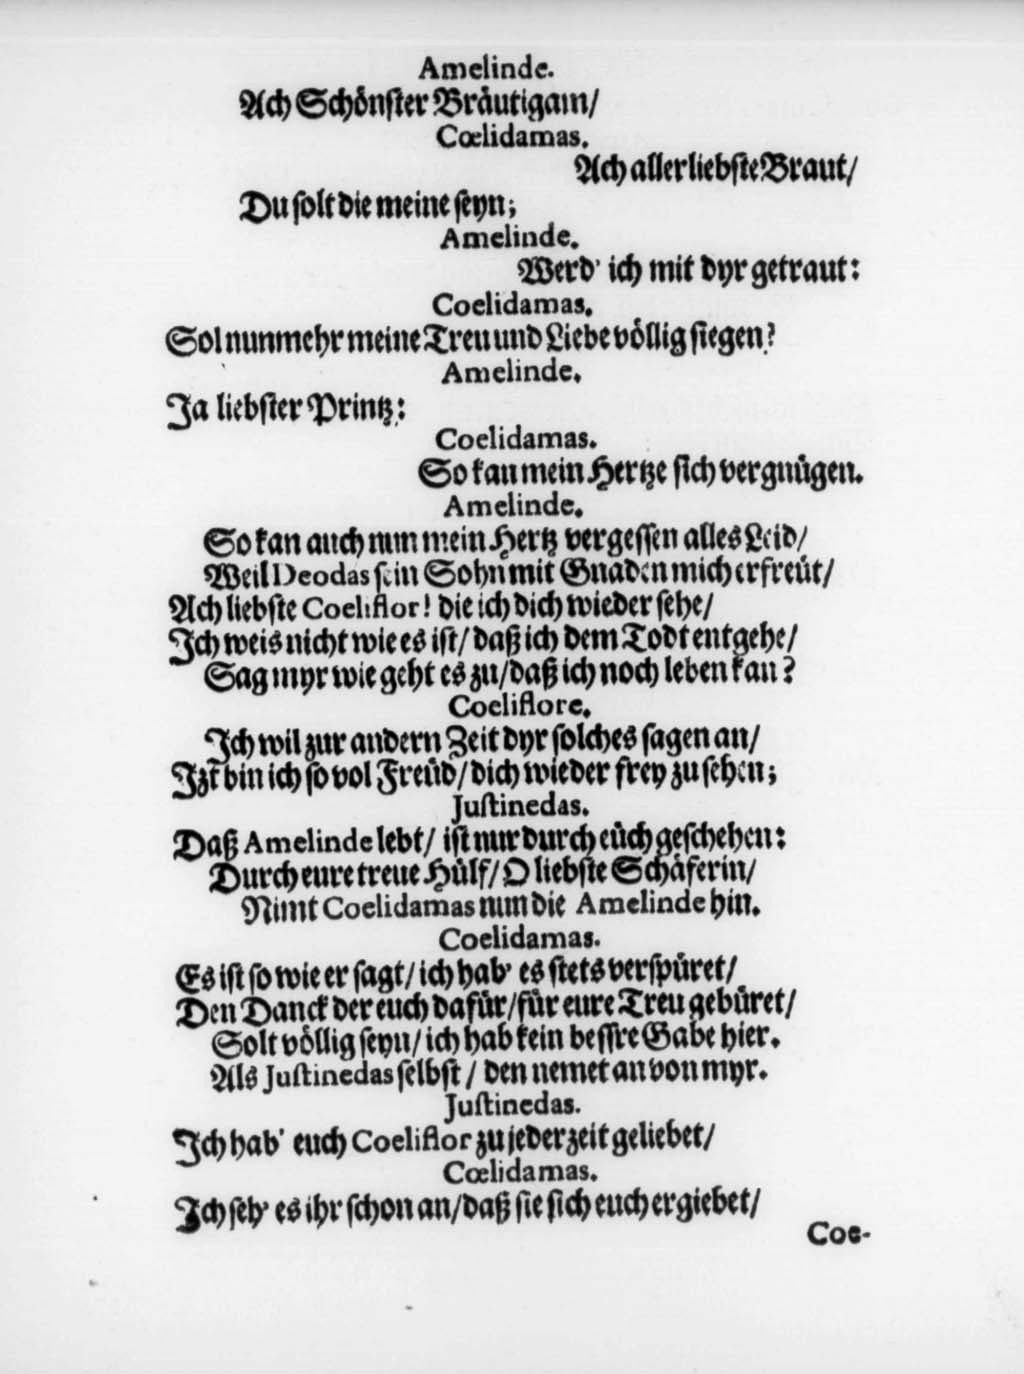 Amelinde.
Ach Schönster Bräutigam/
Cœlidamas.
Ach allerliebste Braut/
Du solt die meine seyn;
Amelinde.
Werd' ich mit dyr getraut:
Coelidamas.
Sol nunmehr meine Treu und Liebe völlig siegen?
Amelinde.
Ja liebster Printz:
Coelidamas.
So kan mein Hertze sich vergnügen.
Amelinde.
So kan auch nun mein Hertz vergessen alles Leid/
Weil Deodas sein Sohn mit Gnaden mich erfreüt/
Ach liebste Coeliflor! die ich dich wieder sehe/
Ich weis nicht wie es ist/ daß ich dem Todt entgehe/
Sag myr wie geht es zu/ daß ich noch leben kan?
Coeliflore.
Ich wil zur andern Zeit dyr solches sagen an/
Izt bin ich so vol Freüd/ dich wieder frey zu sehen;
Justinedas.
Daß Amelinde lebt/ ist nur durch eüch geschehen:
Durch eure treue Hülf/ O liebste Schäferin/
Nimt Coelidamas nun die Amelinde hin.
Coelidamas.
Es ist so wie er sagt/ ich hab' es stets verspüret/
Den Danck der euch dafür/ für eure Treu gebüret/
Solt völlig seyn/ ich hab kein bessre Gabe hier.
Als Justinedas selbst/ den nemet an von myr.
Justinedas.
Ich hab' euch Coeliflor zu jederzeit geliebet/
Cœlidamas.
Ich seh' es ihr schon an/ daß sie sich euch ergiebet/
Coe-